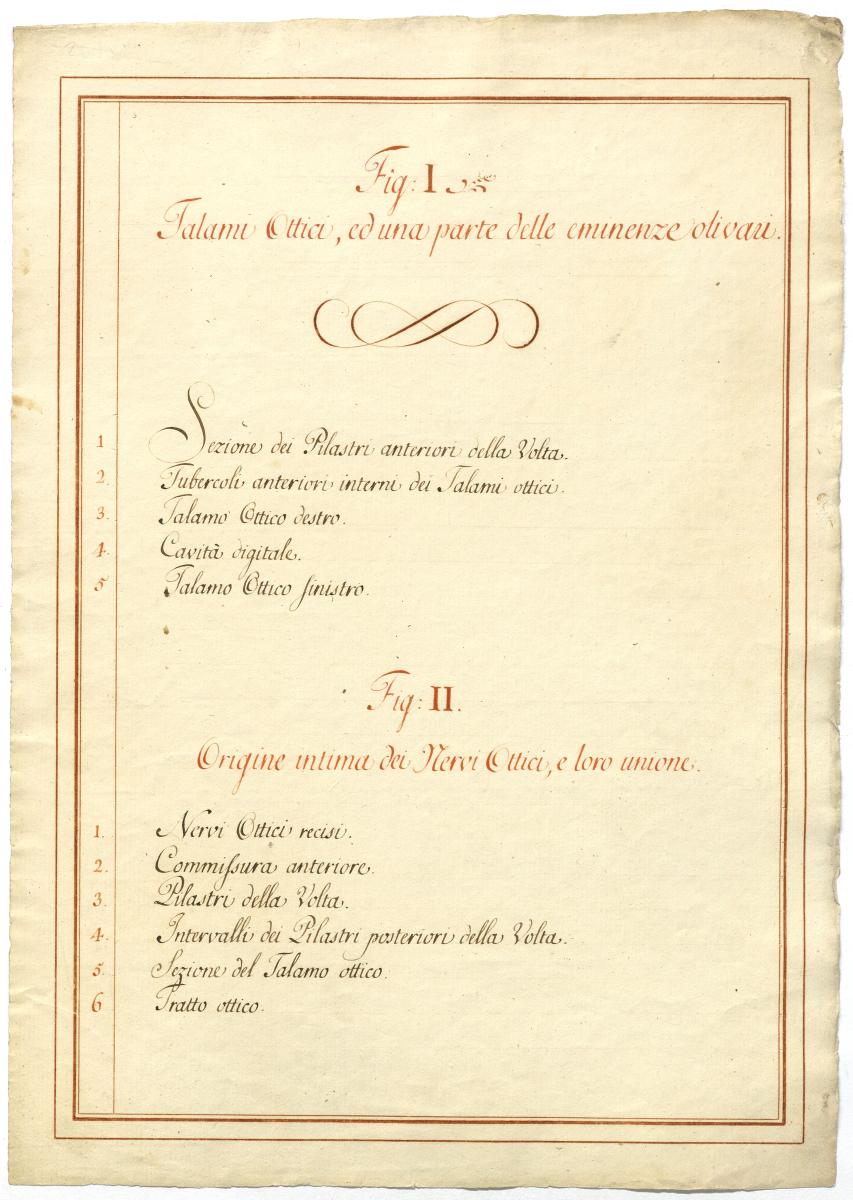 Fig: I
Talami Ottici, ed una parte delle eminenze olivari.
1 Sezione dei Pilastri anteriori della Volta.
2. Tubercoli anteriori interni dei Talami ottici.
3. Talamo Ottico destro.
4. Cavità digitale.
5 Talamo Ottico sinistro.
Fig: II.
Origine intima dei Nervi Ottici, e loro unione.
1. Nervi Ottici recisi.
2. Commissura anteriore.
3. Pilastri della Volta.
4. Intervalli dei Pilastri posteriori della Volta.
5. Sezione del Talamo ottico.
6 Tratto ottico.